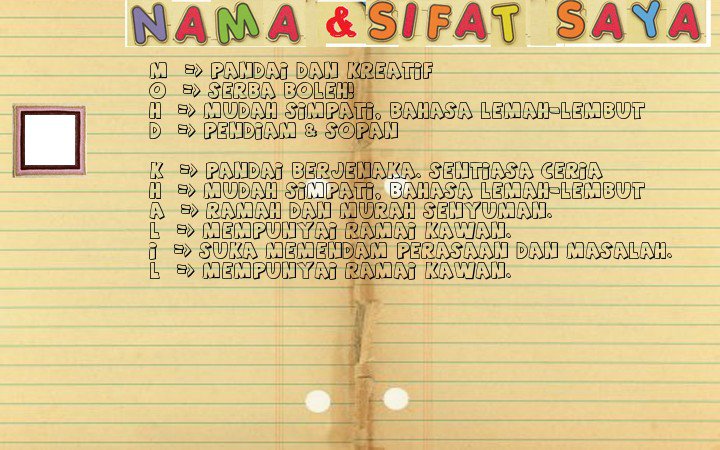 NAMA & SIFAT SAYA
M => PANDAi DAN KREATiF
O => SERBA BOLEH!
H => MUDAH SiMPATi, BAHASA LEMAH-LEMBUT
D => PENDiAM & SOPAN
K => PANDAi BERJENAKA. SENTiASA CERiA
H => MUDAH SiMPATi, BAHASA LEMAH-LEMBUT
A => RAMAH DAN MURAH SENYUMAN.
L => MEMPUNYAi RAMAi KAWAN.
i => SUKA MEMENDAM PERASAAN DAN MASALAH.
L => MEMPUNYAi RAMAi KAWAN.